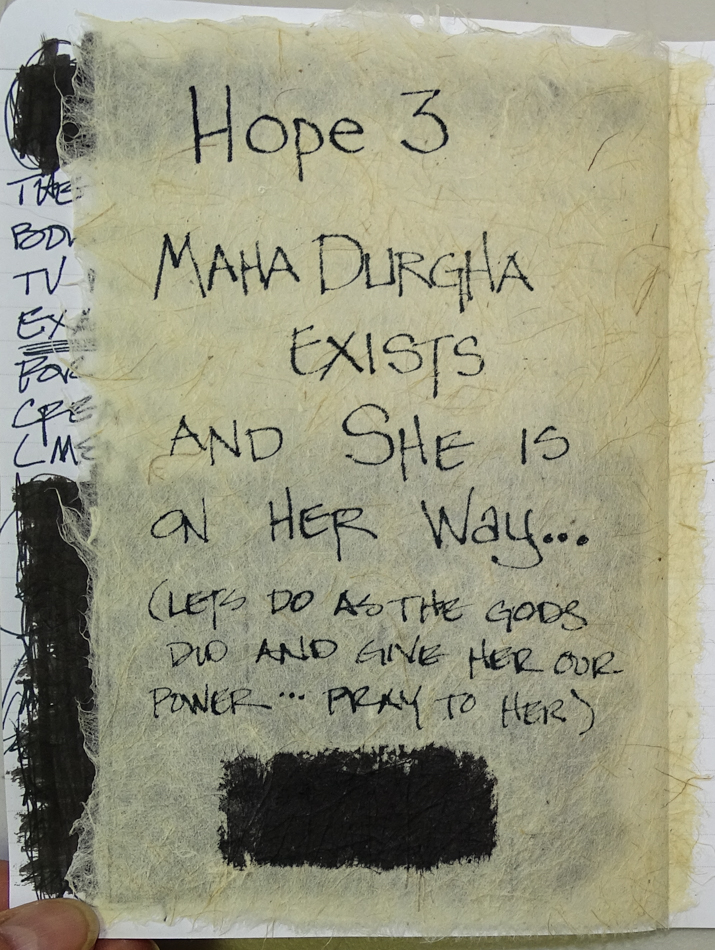 Hope 3
MAHA DURGHA
EXISTS
AND SHE IS
ON HER Way...
(LETS DO AS THE GODS
DID AND GIVE HER OUR
POWER... PRAY TO HER)
THE
TV